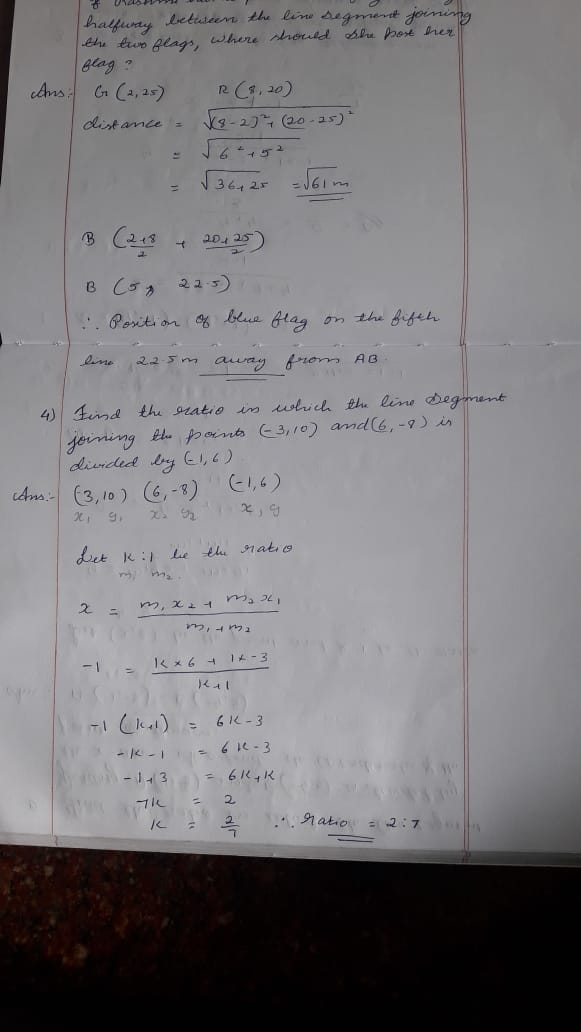 halfway between the line segment joining
the two flags, where should she post her
flag ?
Ans:- G (2,25) R (8,20)
distance = √(8-2)²+(20-25)²
= √6²+5²
= √36+25 = √61 m
B (2+8/2 + 20+25/2)
B (5, 22.5)
∴ Position of blue flag on the fifth
line 22.5m away from AB.
4) Find the ratio in which the line segment
joining the points (-3,10) and (6,-8) is
divided by (-1,6)
Ans:- (-3,10) (6,-8) (-1,6)
x₁ y₁ x₂ y₂ x, y
Let K:1 be the ratio
m₁ m₂
x = m₁x₂ + m₂x₁ / m₁+m₂
-1 = K×6 + 1×-3 / K+1
-1 (K+1) = 6K-3
-K-1 = 6K-3
-1+3 = 6K+K
7K = 2
K = 2/7 ∴ ratio = 2:7